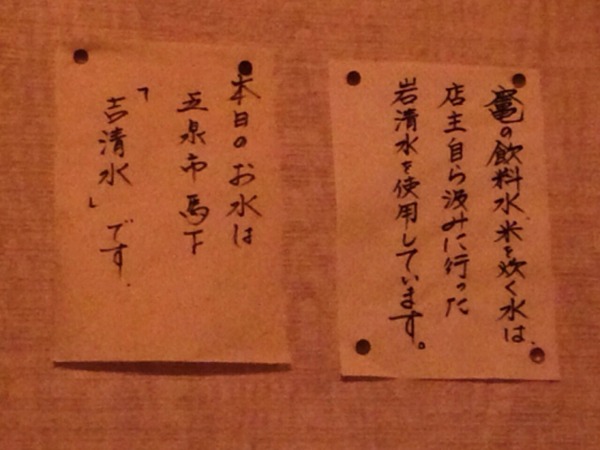 竃の飲料水、米を炊く水は、
店主自ら汲みに行った
岩清水を使用しています。
本日のお水は
五泉市馬下
「吉清水」です.